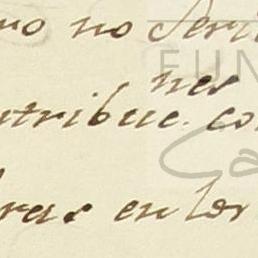 ro no seri
nes
ntribue. co
bras en los
FUN
Ca